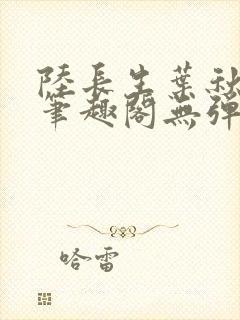 陸長生葉秋
筆趣閣無彈
哈雷